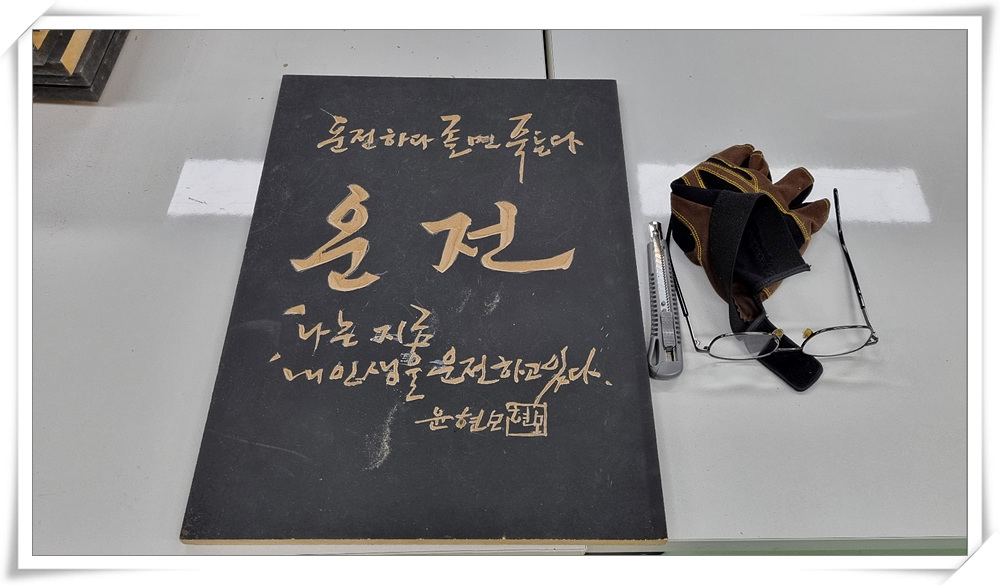 운전하다 졸면 죽는다
운전
나는 지금
내 인생을 운전하고 있다.
윤현모 현모